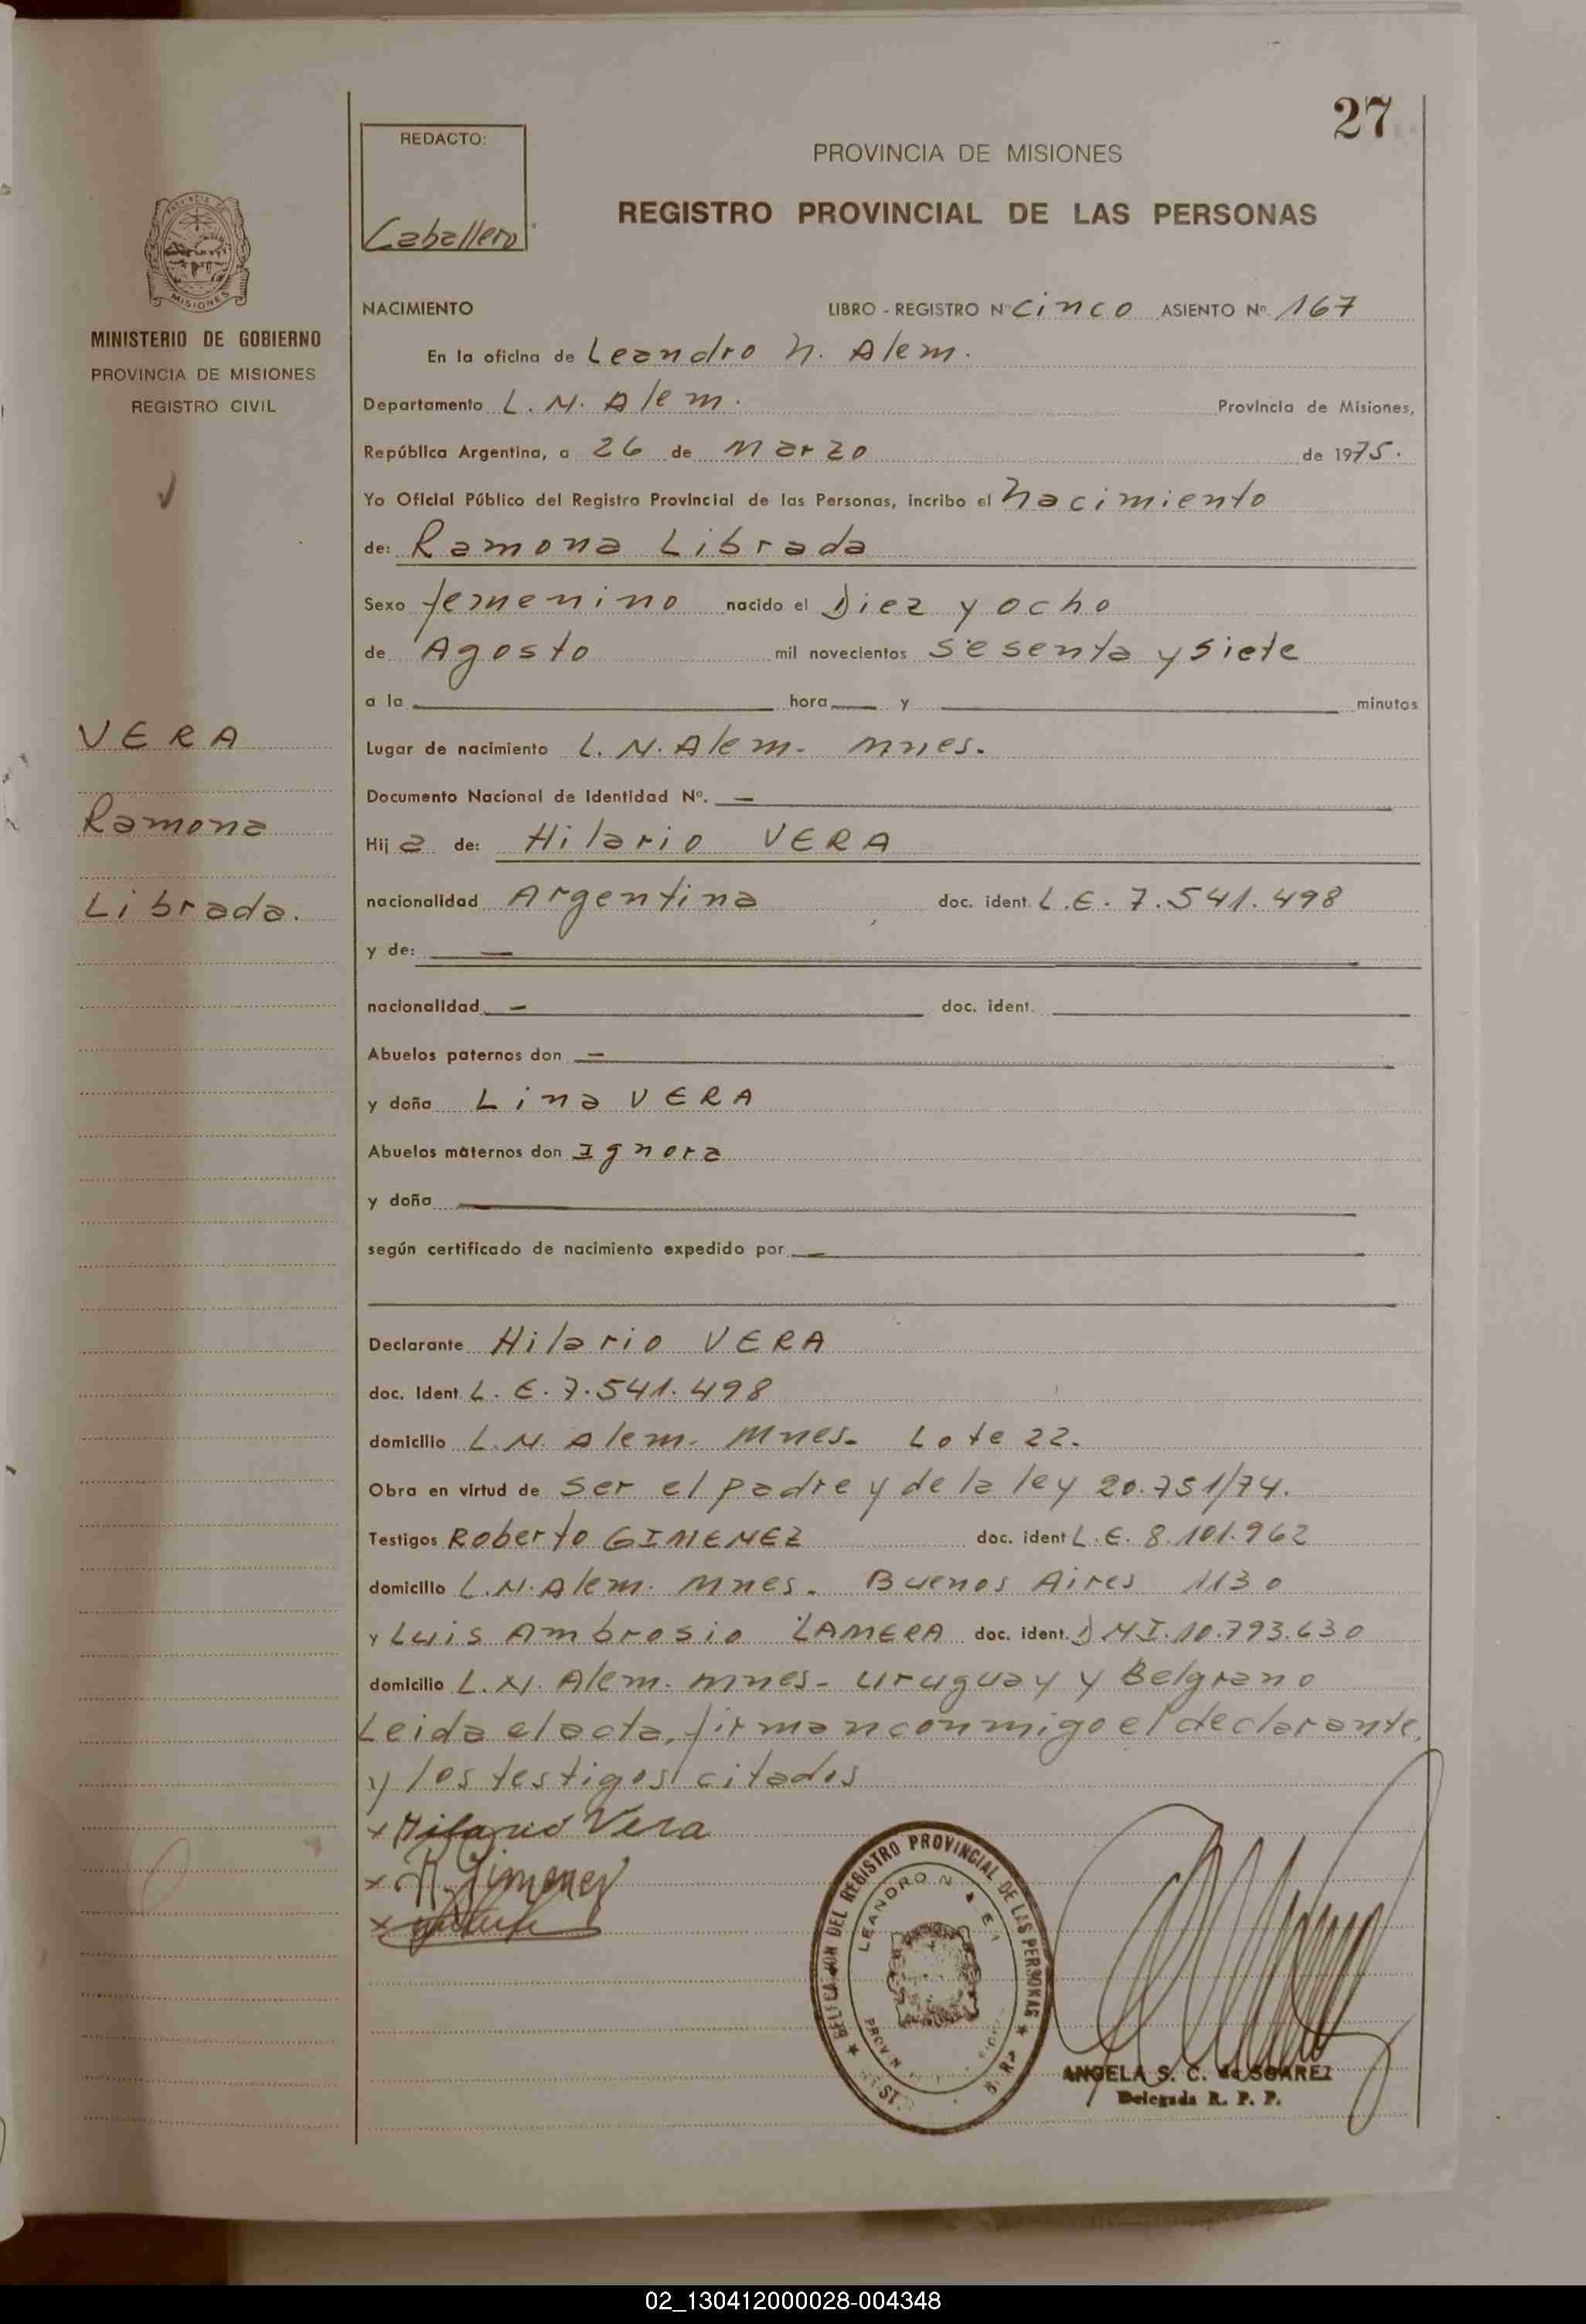 27
REDACTO:
Caballero
PROVINCIA DE MISIONES
REGISTRO PROVINCIAL DE LAS PERSONAS
MISIONES
MINISTERIO DE GOBIERNO
PROVINCIA DE MISIONES
REGISTRO CIVIL
VERA
Ramona
Librada.
NACIMIENTO LIBRO - REGISTRO Nº Cinco ASIENTO Nº 167
En la oficina de Leandro N. Alem.
Departamento L. N. Alem. Provincia de Misiones,
República Argentina, a 26 de Marzo de 1975.
Yo Oficial Público del Registro Provincial de las Personas, incribo el Nacimiento
de: Ramona Librada
Sexo femenino nacido el Diez y ocho
de Agosto mil novecientos sesenta y siete
a la hora y minutos
Lugar de nacimiento L. N. Alem. Mnes.
Documento Nacional de Identidad Nº. —
Hij a de: Hilario VERA
nacionalidad Argentina doc. ident. L.E. 7.541.498
y de: —
nacionalidad — doc. ident.
Abuelos paternos don —
y doña Lina VERA
Abuelos maternos don Ignora
y doña
según certificado de nacimiento expedido por —
Declarante Hilario VERA
doc. ident. L. E. 7.541.498
domicilio L.N. Alem. Mnes. Lote 22.
Obra en virtud de ser el padre y de la ley 20.751/74.
Testigos Roberto GIMENEZ doc. ident L.E. 8.101.962
domicilio L.N. Alem. Mnes. Buenos Aires 1130
y Luis Ambrosio doc. ident. DNI. 10.793.630
domicilio L.N. Alem. Mnes. Uruguay y Belgrano
Leida el acta, firman conmigo el declarante,
y los testigos citados
x Hilario Vera
x R. Gimenez
x
DEL REGISTRO PROVINCIAL DE LAS PERSONAS
LEANDRO N.
ANGELA S. C. de SOAREZ
Delegada R. P. P.
02_130412000028-004348